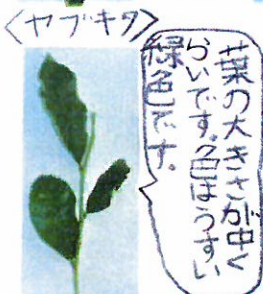 〈ヤブキタ〉
葉の大きさが中く
らいです。色はうすい
緑色です。